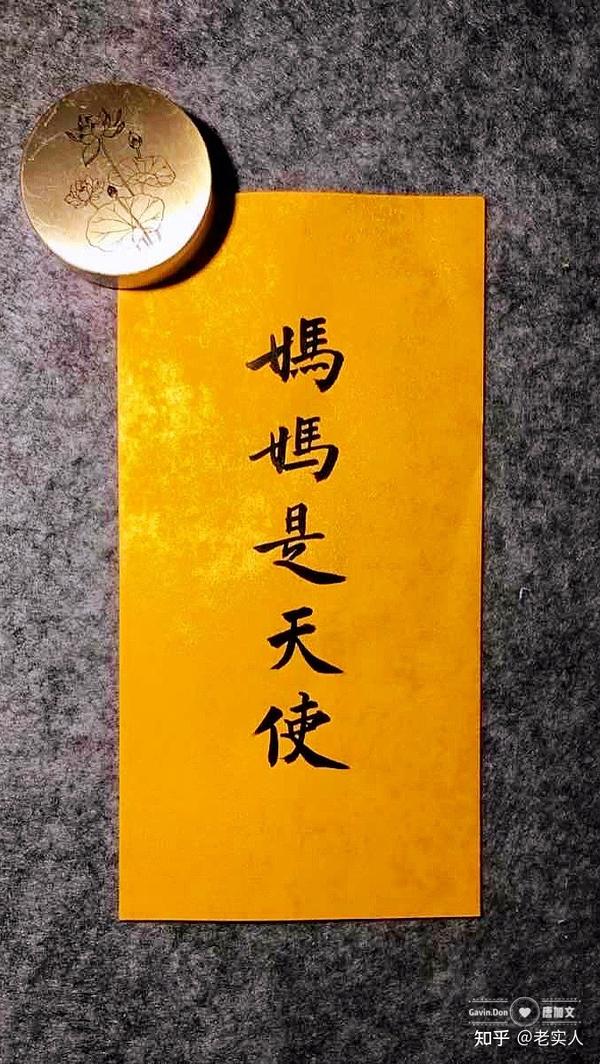 媽媽是天使
Gavin.Don 唐加文
知乎 @老实人